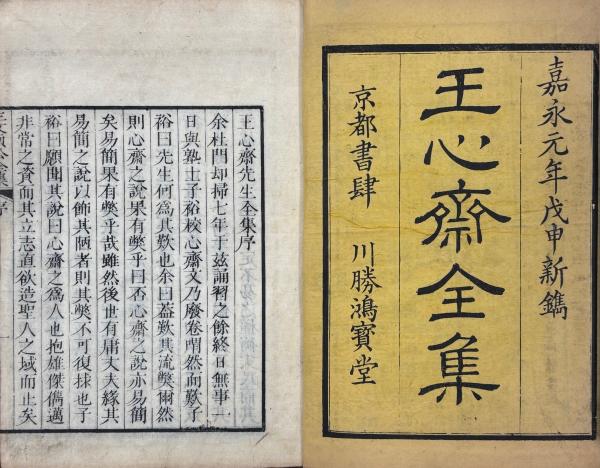 嘉永元年戊申新鐫
王心齋全集
京都書肆 川勝鴻寶堂
王心齋先生全集序
余杜門却掃七年于玆誦習之餘終日無事一
日與塾士子裕校心齋文乃廢卷喟然而歎子
裕曰先生何爲其歎也余曰葢歎其流獘爾然
則心齋之說果有獘乎曰否心齋之說亦易簡
矣易簡果有獘乎哉雖然後世有庸丈夫緣其
易簡之說以飾其陋者則其獘不可復捄也子
裕曰願聞其說曰心齋之爲人也抱雄傑儁邁
非常之資而其立志直欲造聖人之域而止矣